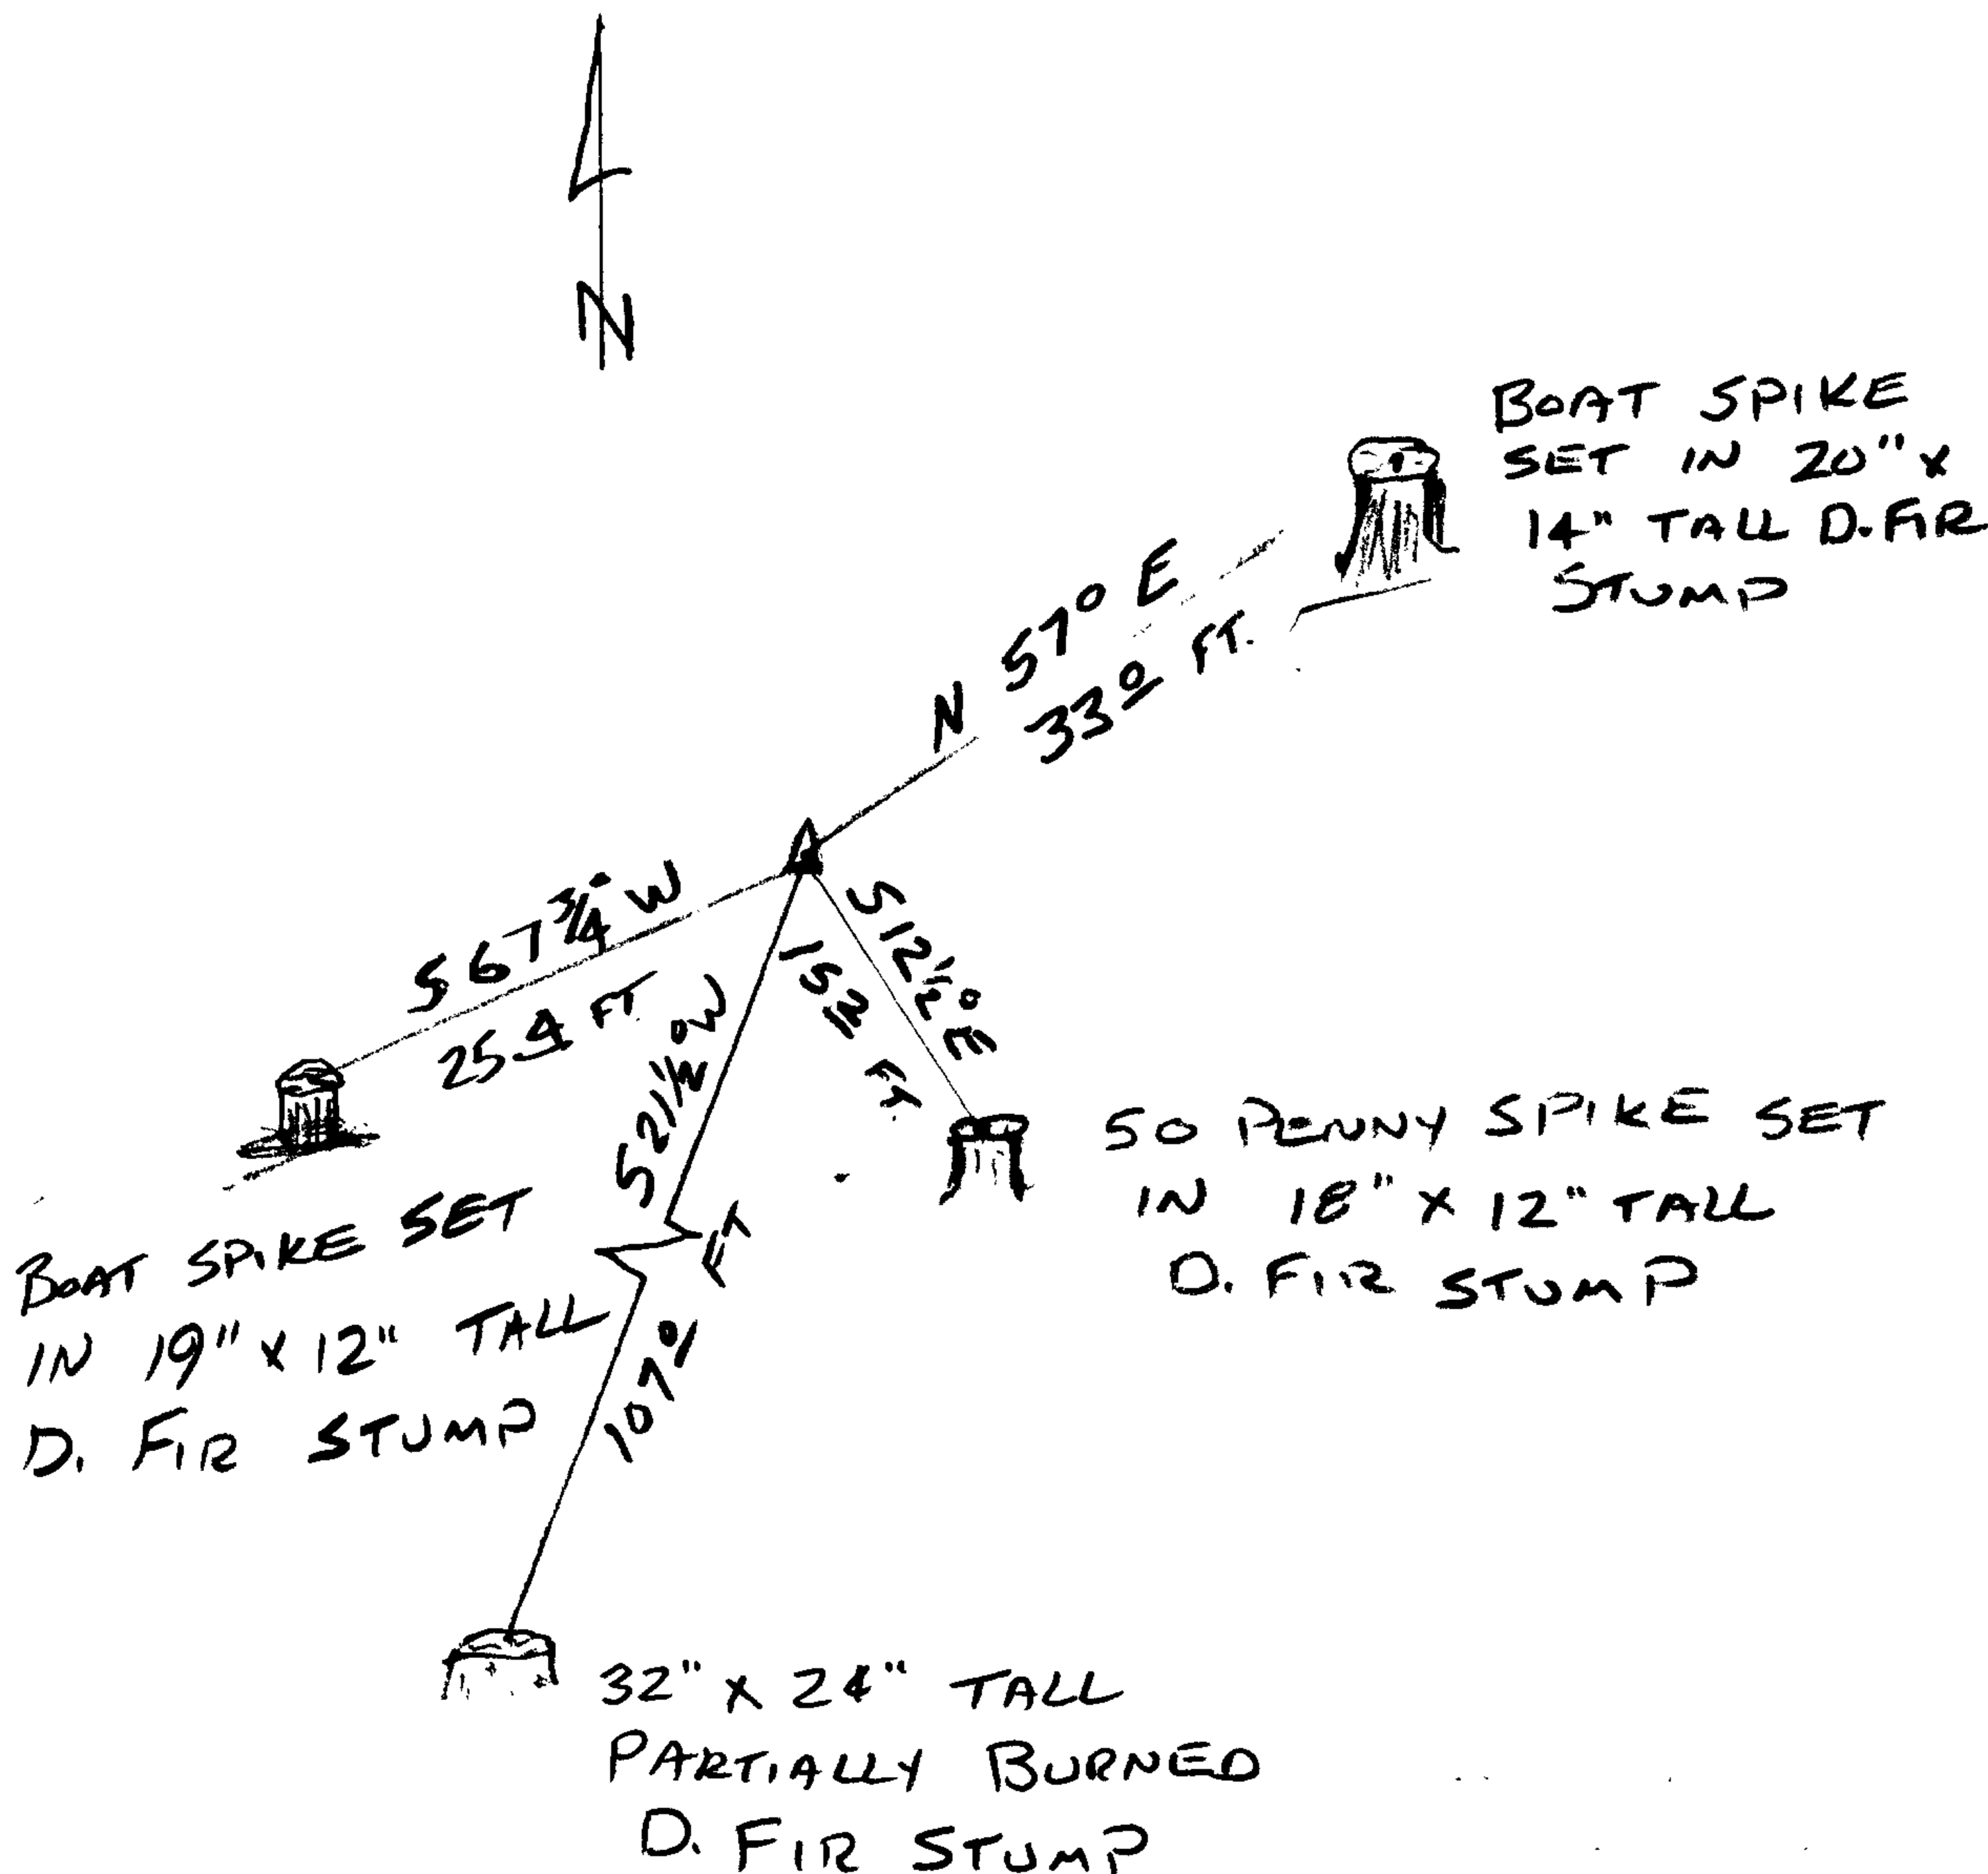 N
BOAT SPIKE
SET IN 20" X
14" TALL D. FIR
STUMP
N 57° E
33 0 FT.
S 67 3/4° W
25 4 FT
S 12 1/2° E
15 2 FT.
S 21 1/2° W
107 0 FT
BOAT SPIKE SET
IN 19" X 12" TALL
D. FIR STUMP
50 PENNY SPIKE SET
IN 18" X 12" TALL
D. FIR STUMP
32" X 24" TALL
PARTIALLY BURNED
D. FIR STUMP